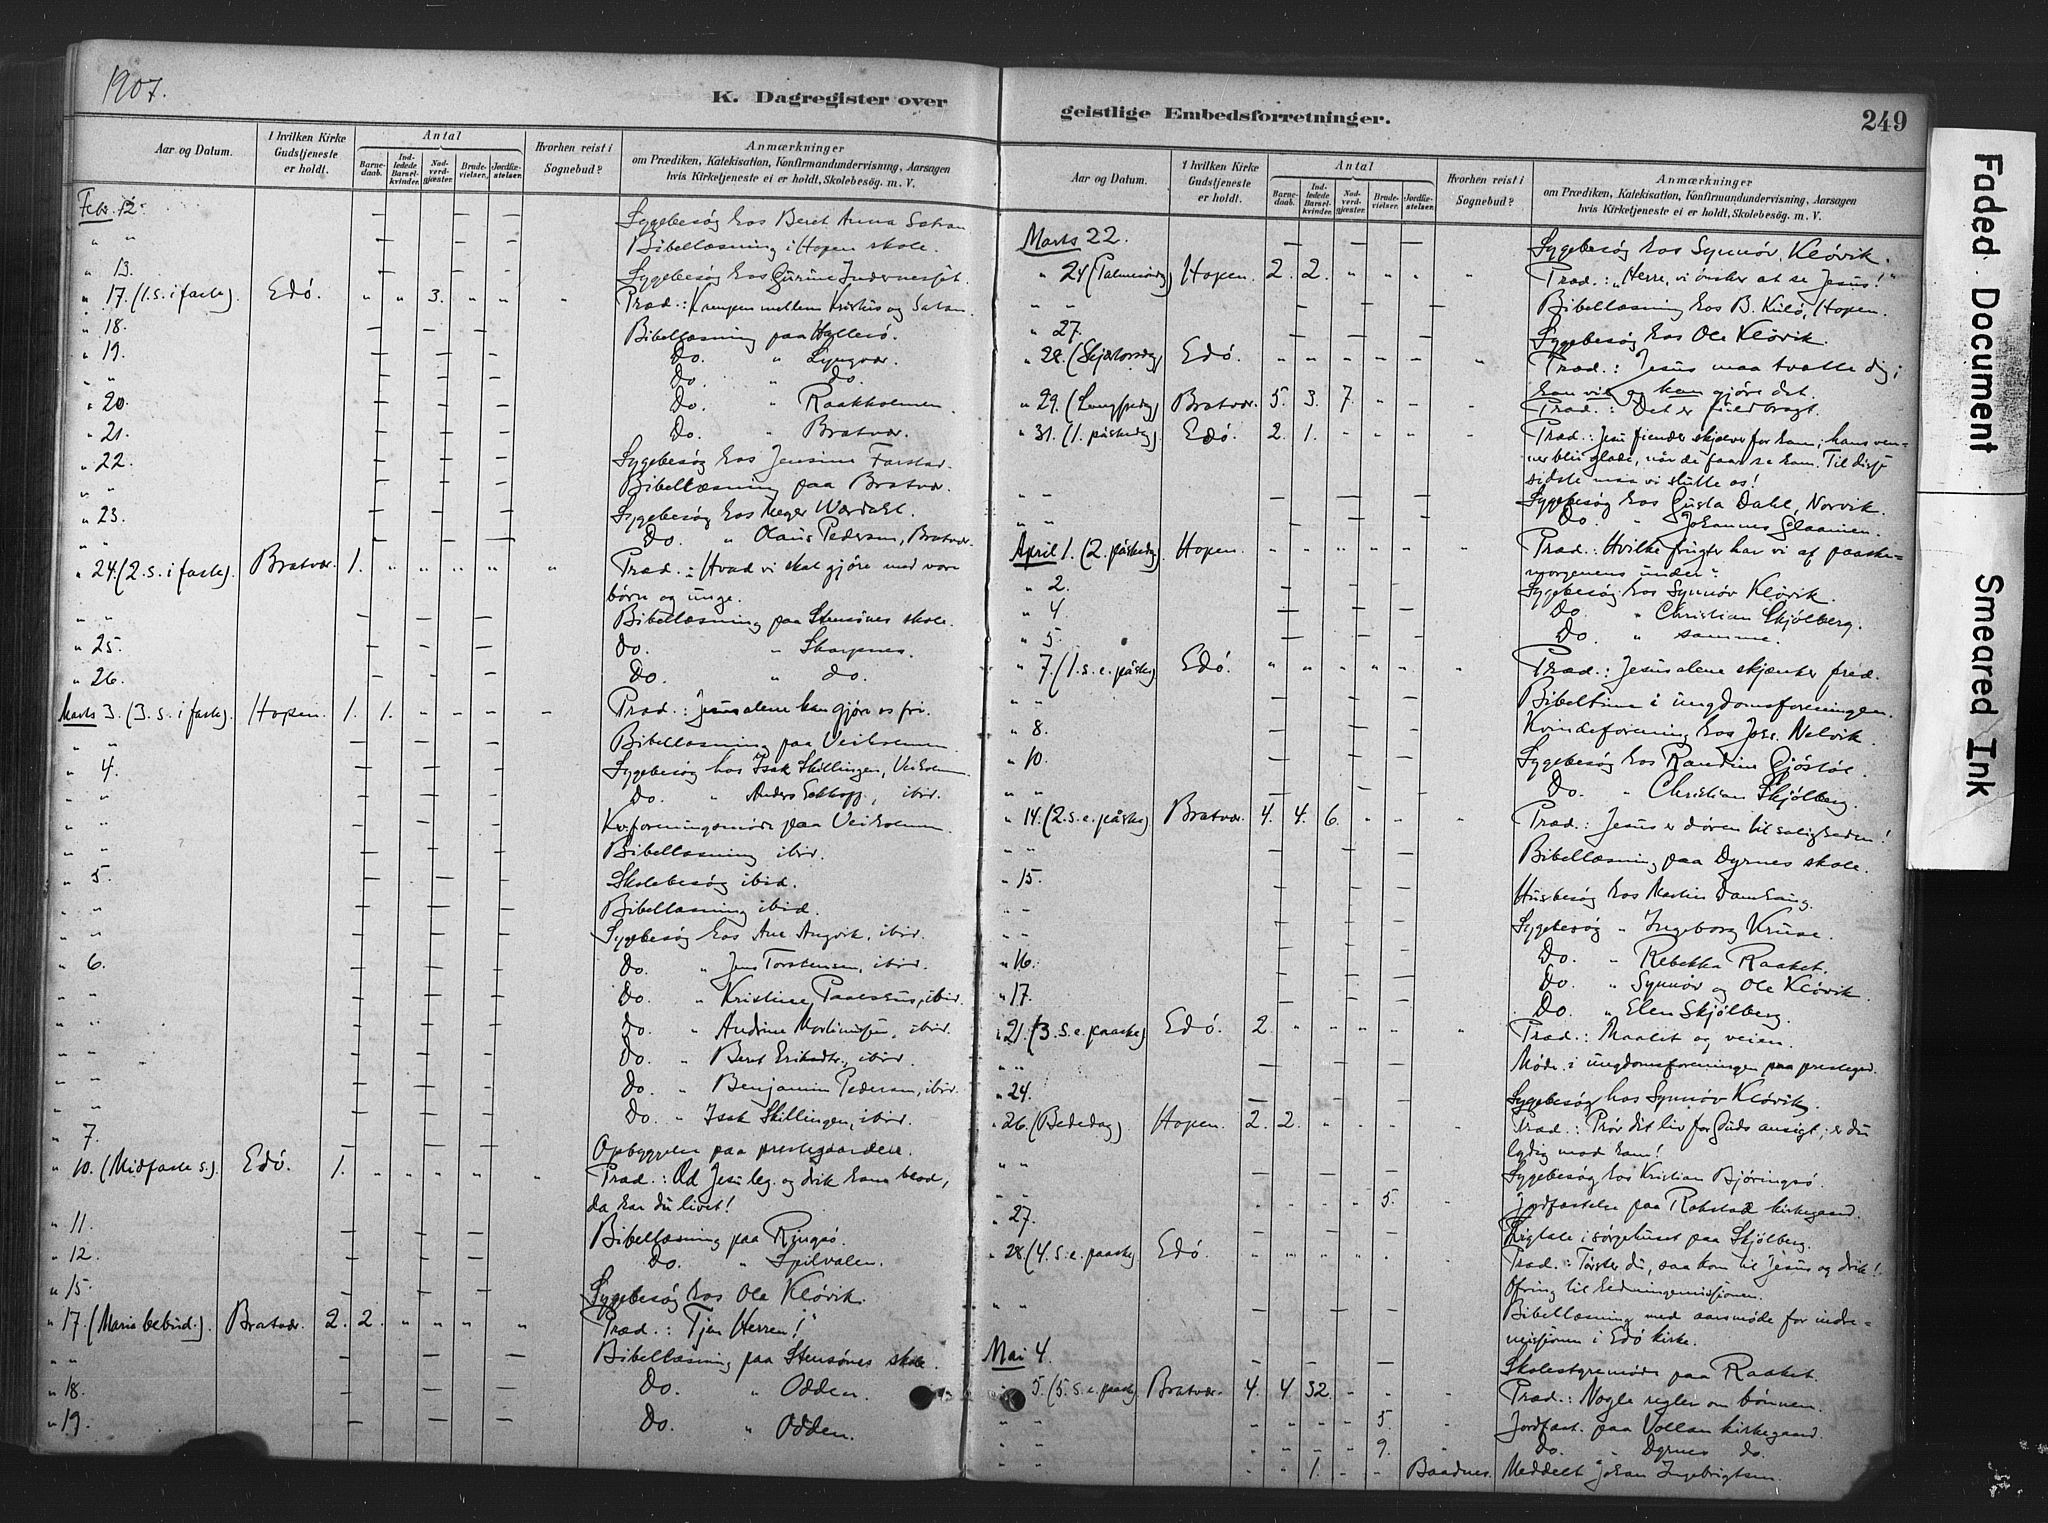 1907.
K. Dagregister over
Aar og Datum. I hvilken Kirke Gudstjeneste er holdt. Antal Barnedaab. Indledede Barselkvinder. Nadverdgjæster. Brudevielser. Jordfæstelser. Hvorhen reist i Sognebud? Anmærkninger om Prædiken, Katekisation, Konfirmandundervisning, Aarsagen hvis Kirketjeneste ei er holdt, Skolebesøg. m. V.
Febr. 12. — — — Sygebesøg hos Beret Anna
" " — — — Bibellæsning i Hopen skole.
" 13. — — — Sygebesøg hos
" 17. (1. s. i faste). Edö. " " 3. " " " Præd.: Krangen mellem Kristus og Satan.
" 18. — — — Bibellæsning paa
" 19. — — — Do. " Lyngvær.
" " — — — Do. " do.
" 20. — — — Do. " Raakholmen.
" 21. — — — Do. " Bratvær.
" 22. — — — Sygebesøg hos Jensine Farstad.
" " — — — Bibellæsning paa Bratvær.
" 23. — — — Sygebesøg hos
" " — — — Do. " Olaus Pedersen, Bratvær.
" 24. (2. s. i faste). Bratvær. 1. " " " " " Præd.: Hvad vi skal gjöre med vore
børn og unge.
" " — — — Bibellæsning paa Stensönes skole.
" 25. — — — Do. " Skarpnes.
" 26. — — — Do. " do.
Marts 3. (3. s. i faste). Hopen. 1. 1. " " " " Præd.: Jesus alene kan gjöre os fri.
" " — — — Bibellæsning paa Veiholmen.
" 4. — — — Sygebesøg hos Isak Skillingen, Veiholmen.
" " — — — Do. " Anders, ibid.
" " — — — Kv.foreningsmöde paa Veiholmen.
" " — — — Bibellæsning ibid.
" 5. — — — Skolebesøg ibid.
" " — — — Bibellæsning ibid.
" " — — — Sygebesøg hos Ane Angvik, ibid.
" 6. — — — Do. " Jens Torstensen, ibid.
" " — — — Do. " Kristine, ibid.
" " — — — Do. " Andrine Martinusen, ibid.
" " — — — Do. " Beret Eriksdtr., ibid.
" " — — — Do. " Benjamin Pedersen, ibid.
" " — — — Do. " Isak Skillingen, ibid.
" 7. — — — Opbyggelse paa prestegaarden.
" 10. (Midfaste s.). Edö. 1. " " " " " Præd.: Æd Jesu leg. og drik hans blod,
da har du livet!
" 11. — — — Bibellæsning paa Ringsö.
" 12. — — — Do. " Spilvalen.
" 15. — — — Sygebesøg hos Ole Klövik.
" 17. (Maria bebud.). Bratvær. 2. 2. " " " " Præd.: Tjen Herren!
" " — — — Bibellæsning paa Stensönes skole.
" 18. — — — Do. " Odden.
" 19. — — — Do. " Odden.
geistlige Embedsforretninger.
249
Aar og Datum. I hvilken Kirke Gudstjeneste er holdt. Antal Barnedaab. Indledede Barselkvinder. Nadverdgjæster. Brudevielser. Jordfæstelser. Hvorhen reist i Sognebud? Anmærkninger om Prædiken, Katekisation, Konfirmandundervisning, Aarsagen hvis Kirketjeneste ei er holdt, Skolebesög. m. V.
Marts 22. — — — Sygebesøg hos Synnöv Klövik.
" 24 (Palmesöndag) Hopen. 2. 2. " " " " Præd.: "Herre, vi önsker at se Jesus!"
" " — — — Bibellæsning hos B. Kulö, Hopen.
" 27. — — — Sygebesøg hos Ole Klövik.
" 28. (Skjærtorsdag) Edö. " " " " " " Præd.: Jesus maa tvætte dig;
han vil og kan gjöre det.
" 29. (Langfredag) Bratvær. 5. 3. 7. " " " Præd.: Det er fuldbragt.
" 31. (1. påskedag). Edö. 2. 1. " " " " Præd.: Jesu fiender skjælver for ham; hans ven-
ner blir glade, når de faar se ham. Til disse
sidste maa vi slutte os!
" " — — — Sygebesøg hos Gusta Dahl, Norvik.
" " — — — Do. " Johannes Glaamen.
April 1. (2. påskedag) Hopen. " " " " " " Præd.: Hvilke frugter har vi af paaske-
morgenens under.
" 2. — — — Sygebesøg hos Synnöv Klövik.
" 4. — — — Do. " Christian Skjölberg.
" 5. — — — Do. " samme.
" 7. (1. s. e. påske) Edö. " " " " " " Præd.: Jesus alene skjænker fred.
" " — — — Bibeltime i ungdomsforeningen.
" 8. — — — Kvindeforening hos Johs. Nelvik.
" 10. — — — Sygebesøg hos Randine
" " — — — Do. " Christian Skjölberg.
" 14. (2. s. e. påske) Bratvær. 4. 4. 6. " " " Præd.: Jesus er dören til saligheden!
" " — — — Bibellæsning paa Dyrnes skole.
" 15. — — — Husbesøg hos Martin
" " — — — Sygebesøg " Ingeborg Kruse.
" 16. — — — Do. " Rebekka Raaket.
" 17. — — — Do. " Synnöv og Ole Klövik.
— — — Do. " Elen Skjölberg.
" 21. (3. s. e. paaske) Edö. 2. " " " " " Præd.: Maalet og veien.
" " — — — Möde i ungdomsforeningen paa presteged.
" 24. — — — Sygebesøg hos Synnöv Klövik.
" 26. (Bededag) Hopen. 2. 2. " " " " Præd.: Prøv dit liv for Guds ansigt; er du
lydig mod ham!
" " — — — Sygebesøg hos Kristian Björingsö.
" " " " " " 5. " Jordfæstelse paa Rokstad kirkegaard.
" 27. — — — Ligtale i sörgehuset paa Skjölberg.
" 28. (4. s. e. paaske) Edö. " " " " " " Præd.: Törster du, saa kom til Jesus og drik!
Ofring til Hedningemissionen.
" " — — — Bibellæsning med aarsmöde for indre-
missionen i Edö kirke.
Mai 4. — — — Skolestyremöde paa Raaket.
" 5. (5. s. e. paaske) Bratvær. 4. 4. 32. " " " Præd.: Nogle regler om bönnen.
" " " " " " 5. " Jordfæst. paa Vollan kirkegaard.
" " " " " " 9. " Do. " Dyrnes do.
" " " " 1. " " Baadnes. Meddelt Johan Ingebrigtsen.
Faded Document Smeared Ink